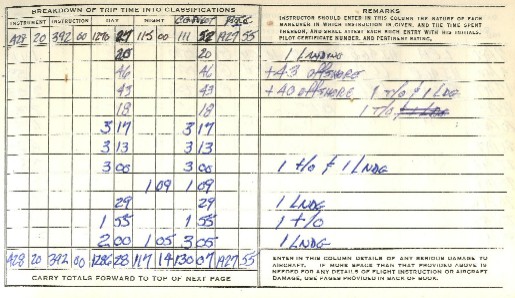 BREAKDOWN OF TRIP TIME INTO CLASSIFICATIONS REMARKS
INSTRUMENT INSTRUCTION DAY NIGHT
INSTRUCTOR SHOULD ENTER IN THIS COLUMN THE NATURE OF EACH
MANEUVER IN WHICH INSTRUCTION IS GIVEN, AND THE TIME SPENT
THEREON, AND SHALL ATTEST EACH SUCH ENTRY WITH HIS INITIALS,
PILOT CERTIFICATE NUMBER, AND PERTINENT RATING.
429 20 392 00 1270 27 115 00 111 52 1927 55
20 20 1 LNDING
46 46 +43 OFFSHORE
43 43 +40 OFFSHORE 1 T/O & 1 LDG
18 18 1 T/O
3 17 3 17
3 13 3 13
3 00 3 00 1 T/O & 1 LNDG
1 09 1 09
29 29 1 LNDG
1 55 1 55 1 T/O
2 00 1 05 3 05 1 LNDG
429 20 392 00 1286 28 117 14 130 07 1927 55
CARRY TOTALS FORWARD TO TOP OF NEXT PAGE
ENTER IN THIS COLUMN DETAILS OF ANY SERIOUS DAMAGE TO
AIRCRAFT. IF MORE SPACE THAN THAT PROVIDED ABOVE IS
NEEDED FOR ANY DETAILS OF FLIGHT INSTRUCTION OR AIRCRAFT
DAMAGE, USE PAGES PROVIDED IN BACK OF BOOK.